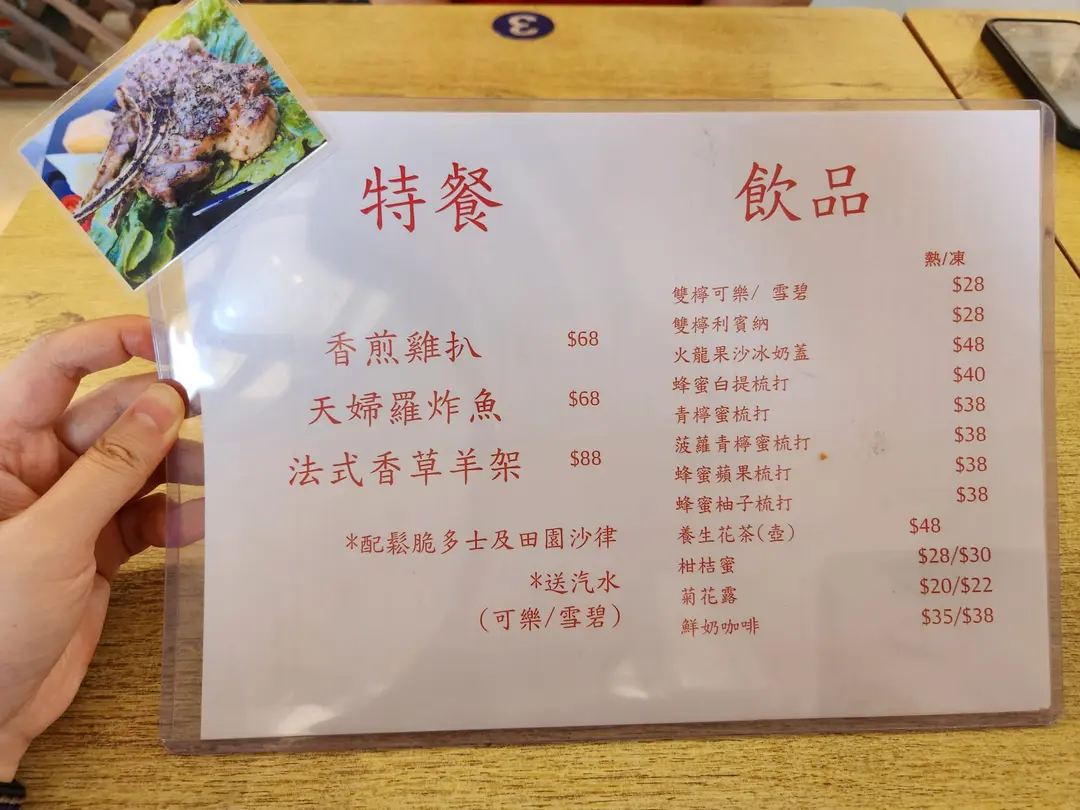 3
特餐
香煎雞扒 $68
天婦羅炸魚 $68
法式香草羊架 $88
*配鬆脆多士及田園沙律
*送汽水
(可樂/雪碧)
飲品
熱/凍
雙檸可樂/ 雪碧 $28
雙檸利賓納 $28
火龍果沙冰奶蓋 $48
蜂蜜白提梳打 $40
青檸蜜梳打 $38
菠蘿青檸蜜梳打 $38
蜂蜜蘋果梳打 $38
蜂蜜柚子梳打 $38
養生花茶(壺) $48
柑桔蜜 $28/$30
菊花露 $20/$22
鮮奶咖啡 $35/$38